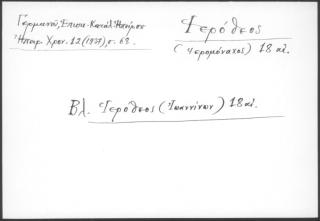 Γερμανού, Επισκ. Κατάλ. Ηπείρου
Ηπειρ. Χρον. 12 (1937), σ. 63.
Ἱερόθεος
(ἱερομόναχος) 18 αἰ.
Βλ. Ἱερόθεος (Ἰωαννίνων) 18 αἰ.